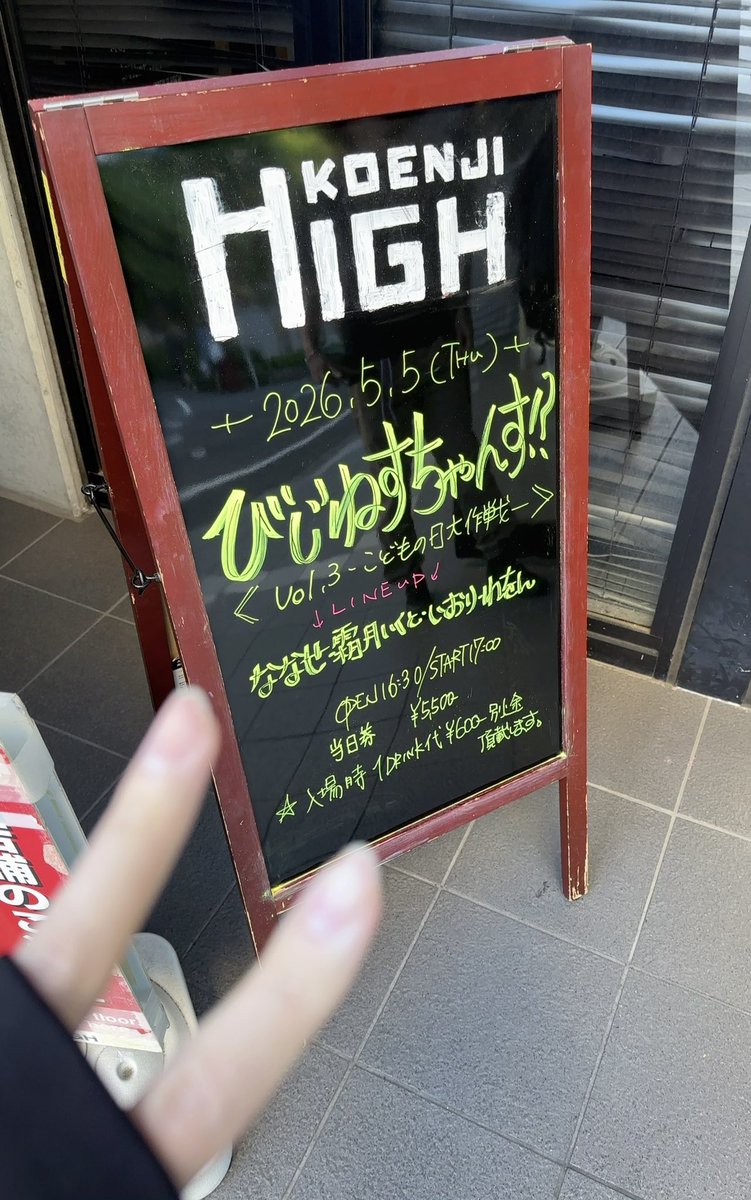 KOENJI
HIGH
+ 2026.5.5 (THU) +
びじねすちゃんす!?
≪ Vol.3 - こどもの日大作戦 - ≫
↓LINEUP↓
ななせ・霜月
OPEN 16:30 / START 17:00
当日券 ¥5,500-
☆ 入場時 1DRINK代 ¥600- 別途
頂戴します。
floor